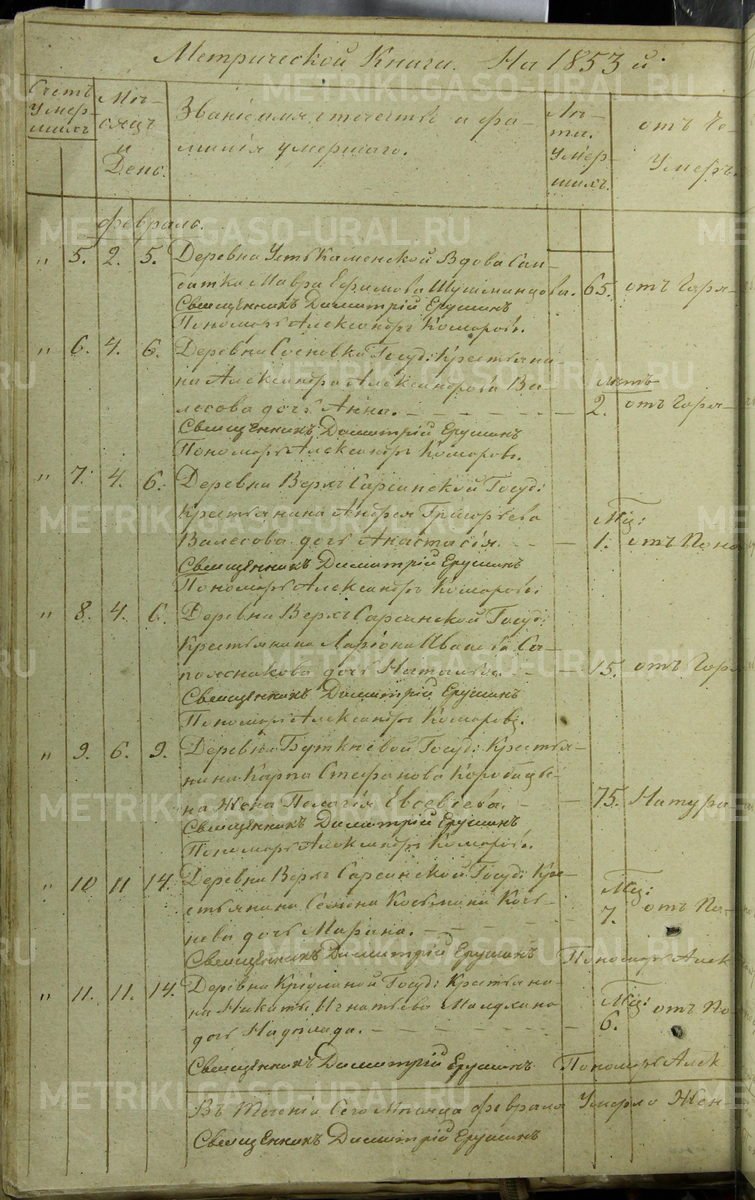 Метрической Книги. На 1853 й
Счетъ Умершихъ
Мѣсяцъ и День.
Званіе имя, отечество и фамилія умершаго.
Лѣта Умершихъ.
отъ че
Умеръ.
Февраль.
" 5. 2. 5. Деревни Усть Каменской Вдова Сол-
датка Мавра Ефимова 65. отъ Горя-
Священникъ Димитрій Ерушинъ
Пономарь Александръ Комаровъ.
" 6. 4. 6. Деревни Сосновки Госуд: Крестьяни-
на Александра Александрова Ва- лѣтъ
лесова дочь Анна. 2. отъ Горя-
Священникъ Димитрій Ерушинъ
Пономарь Александръ Комаровъ.
" 7. 4. 6. Деревни Верхъ Сарсинской Госуд:
Крестьянина Андрея Григорьева Мѣс:
Валесова дочь Анастасія. 1. отъ Поно
Священникъ Димитрій Ерушинъ
Пономарь Александръ Комаровъ.
" 8. 4. 6. Деревни Верхъ Сарсинской Госуд:
Крестьянина Ларіона Иванова Са-
пожникова дочь Наталья. 15. отъ Горя
Священникъ Димитрій Ерушинъ
Пономарь Александръ Комаровъ.
" 9. 6. 9. Деревни Госуд: Крестья-
нина Карпа Стефанова Коробицы-
на Жена Пелагія Евсевіева. 75. Натура
Священникъ Димитрій Ерушинъ
Пономарь Александръ Комаровъ.
" 10 11 14. Деревни Верхъ Сарсинской Госуд: Кре-
стьянина Семена Косьмина Мѣс:
дочь Марина. 7. отъ По-
Священникъ Димитрій Ерушинъ Пономарь Алек
" 11. 11. 14. Деревни Госуд: Крестьяни-
на Никиты Игнатьева Мѣс:
дочь 6. отъ По-
Священникъ Димитрій Ерушинъ Пономарь Алек
Въ теченіи Сего Мѣсяца Февраля Умерло Жен
Священникъ Димитрій Ерушинъ
METRIKI.GASO-URAL.RU